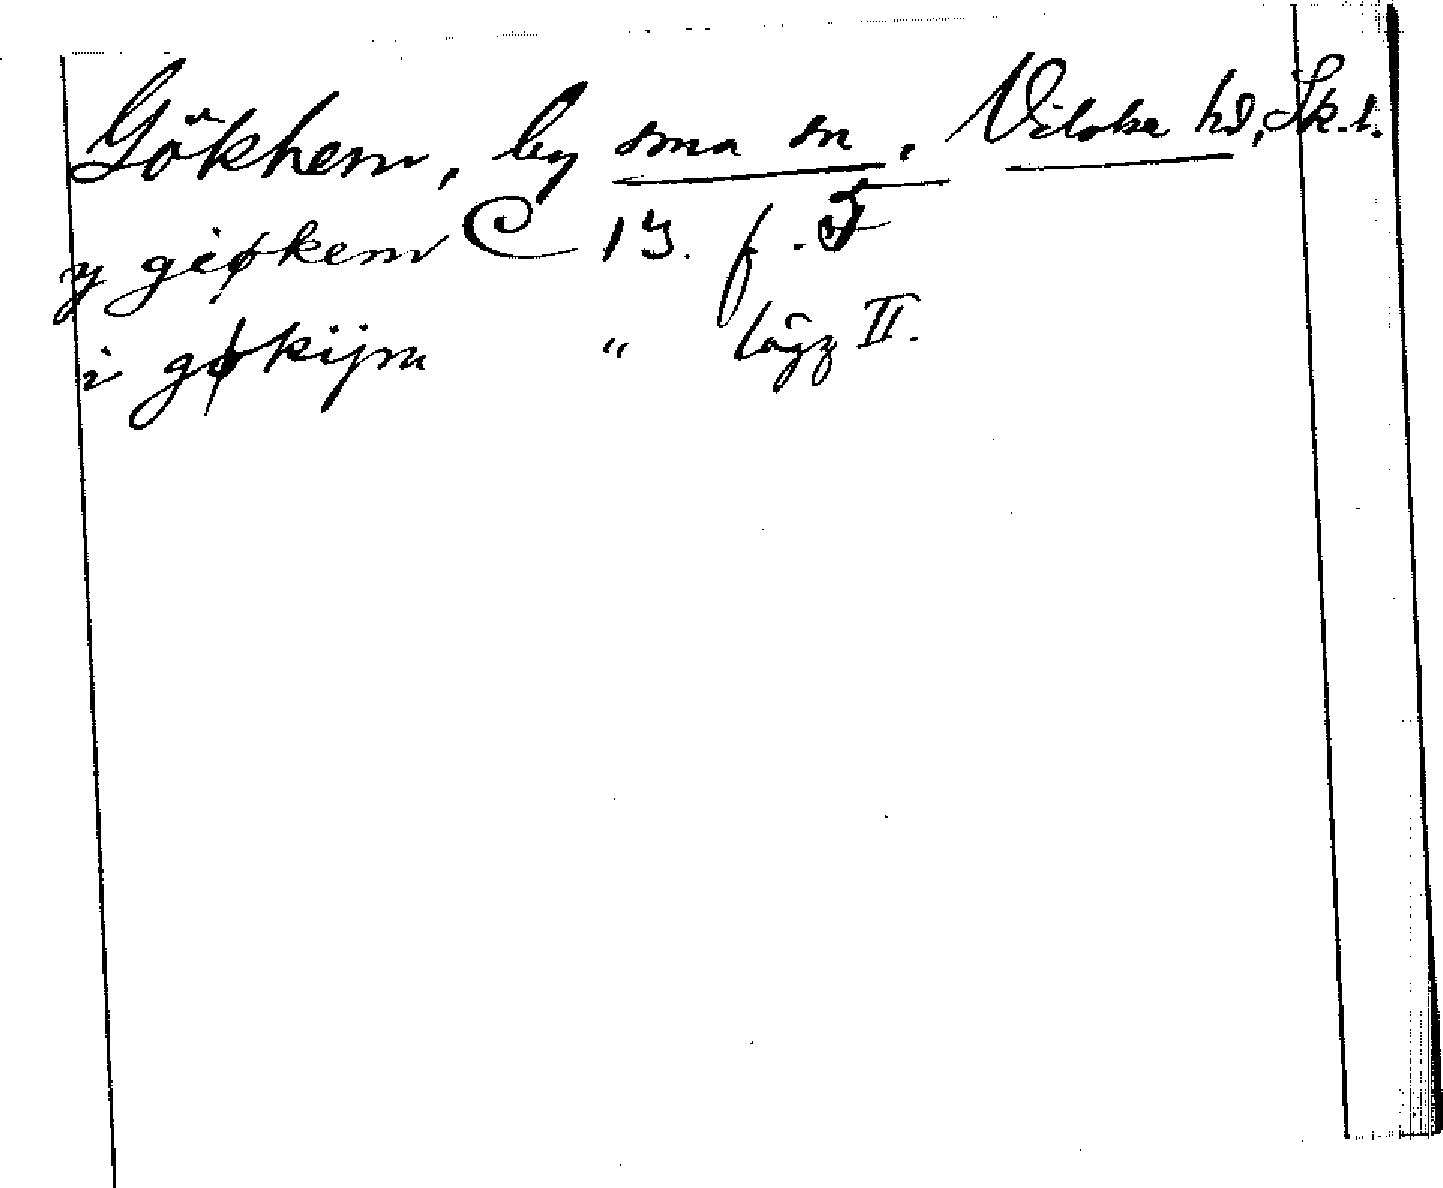 Gökhem, by sma sn, Vilske hd, Sk.l.
y giøkem C 13. f. 5
i gøkijm " lägg II.